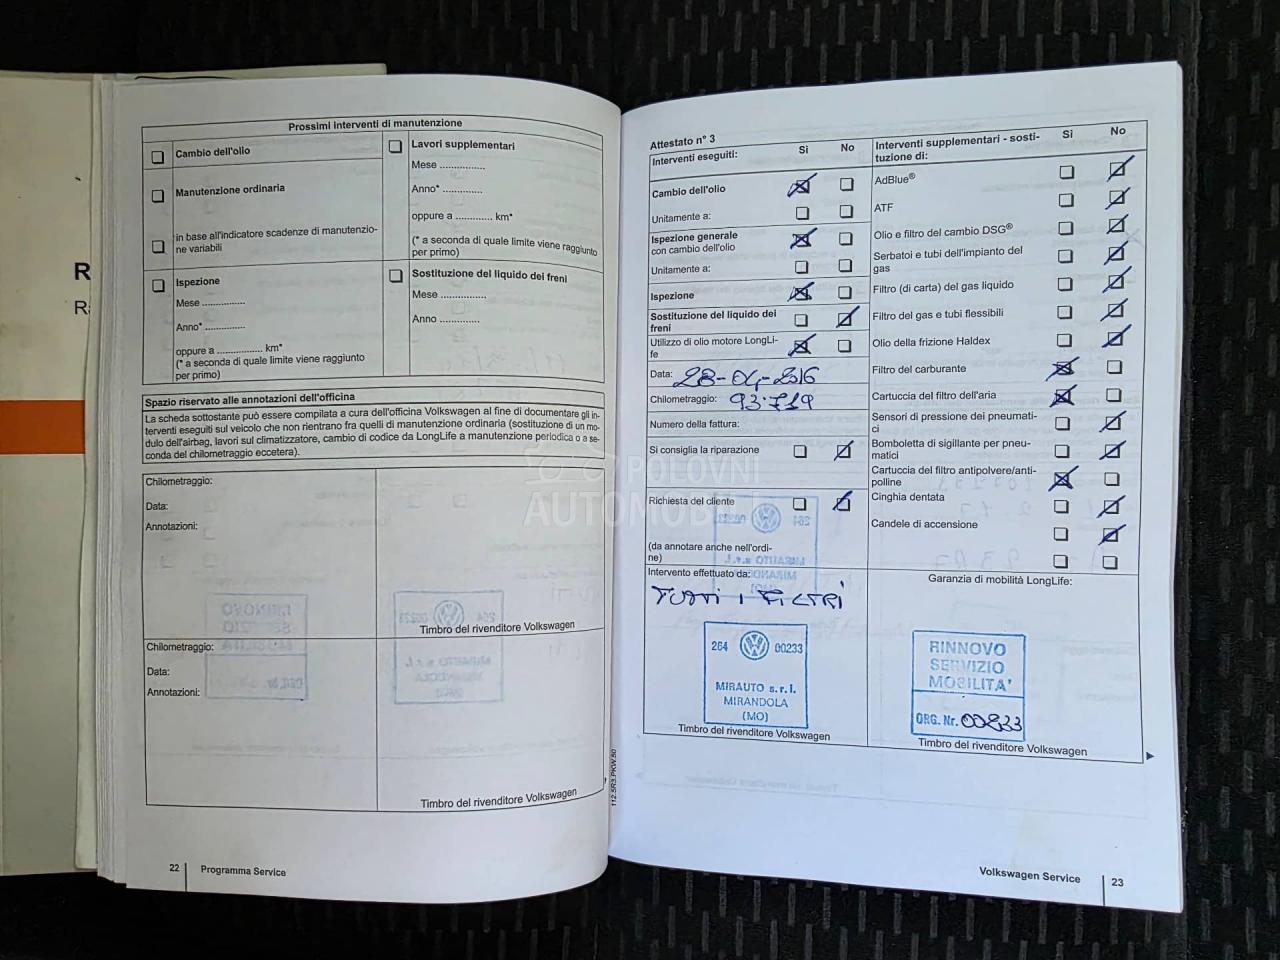 R
Ra
Prossimi interventi di manutenzione
Cambio dell'olio
Manutenzione ordinaria
in base all'indicatore scadenze di manutenzio-
ne variabili
Lavori supplementari
Mese ................
Anno* ..............
oppure a ............. km*
(* a seconda di quale limite viene raggiunto
per primo)
Ispezione
Mese ...............
Anno* ..............
oppure a ................ km*
(* a seconda di quale limite viene raggiunto
per primo)
Sostituzione del liquido dei freni
Mese ................
Anno ..............
Spazio riservato alle annotazioni dell'officina
La scheda sottostante può essere compilata a cura dell'officina Volkswagen al fine di documentare gli in-
terventi eseguiti sul veicolo che non rientrano fra quelli di manutenzione ordinaria (sostituzione di un mo-
dulo dell'airbag, lavori sul climatizzatore, cambio di codice da LongLife a manutenzione periodica o a se-
conda del chilometraggio eccetera).
Chilometraggio:
Data:
Annotazioni:
Timbro del rivenditore Volkswagen
Chilometraggio:
Data:
Annotazioni:
Timbro del rivenditore Volkswagen
112.5R3.PKW.50
22
Programma Service
POLOVNI
AUTOMOBILI
Attestato n° 3
Interventi eseguiti: Sì No
Cambio dell'olio
Unitamente a:
Ispezione generale
con cambio dell'olio
Unitamente a:
Ispezione
Sostituzione del liquido dei
freni
Utilizzo di olio motore LongLi-
fe
Data: 28-04-2016
Chilometraggio: 93.719
Numero della fattura:
Si consiglia la riparazione
Richiesta del cliente
(da annotare anche nell'ordi-
ne)
Intervento effettuato da:
TUTTI I FILTRI
264 00233
MIRAUTO s.r.l.
MIRANDOLA
(MO)
Timbro del rivenditore Volkswagen
Interventi supplementari - sosti-
tuzione di: Sì No
AdBlue®
ATF
Olio e filtro del cambio DSG®
Serbatoi e tubi dell'impianto del
gas
Filtro (di carta) del gas liquido
Filtro del gas e tubi flessibili
Olio della frizione Haldex
Filtro del carburante
Cartuccia del filtro dell'aria
Sensori di pressione dei pneumati-
ci
Bomboletta di sigillante per pneu-
matici
Cartuccia del filtro antipolvere/anti-
polline
Cinghia dentata
Candele di accensione
Garanzia di mobilità LongLife:
RINNOVO
SERVIZIO
MOBILITA'
ORG. Nr. 00233
Timbro del rivenditore Volkswagen
Volkswagen Service
23